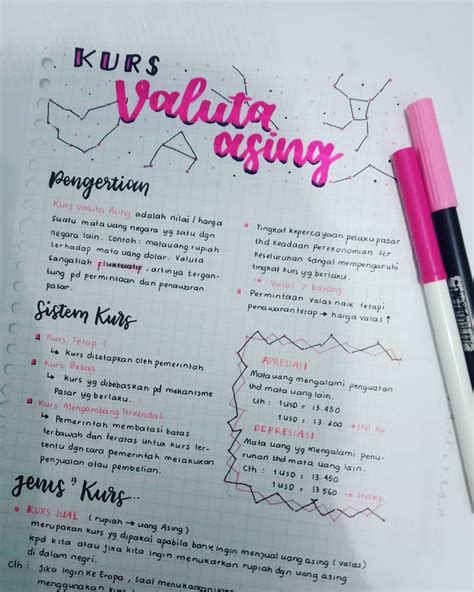 KURS
Valuta
asing
Pengertian
Kurs Valuta Asing adalah nilai / harga
suatu mata uang negara yg satu dgn
negara lain. Contoh : mata uang rupiah
terhadap mata uang dolar. Valuta
sangatlah fluktuatif, artinya tergan-
tung pd permintaan dan penawaran
pasar.
Tingkat kepercayaan pelaku pasar
thd Keadaan perekonomian ter
Keseluruhan Sangat mempengaruhi
tingkat kurs yg berlaku.
→ Valas > barang
Permintaan valas naik tetapi
penawaran tetap → harga valas ↑
Sistem Kurs
Kurs Tetap (
↳ kurs ditetapkan oleh pemerintah
Kurs Bebas
↳ kurs yg dibebaskan pd mekanisme
Pasar yg berlaku.
Kurs Mengambang Terkendali
↳ Pemerintah membalasi batas
terbawah dan teratas untuk kurs ter-
tentu dgn cara pemerintah melakukan
penjualan atau pembelian.
APRESIASI
Mata uang mengalami penguatan
thd mata uang lain.
Cth : 1 USD = 13.450
1 USD = 13.200 → thd Rp
DEPRESIASI
Mata uang yg mengalami penu-
runan thd mata uang lain.
Cth : 1 USD = 13.450
1 USD = 13 560 → thd Rp
Jenis" Kurs..
KURS JUAL (rupiah → uang Asing)
merupakan kurs yg dipakai apabila bank ingin menjual uang asing (valas)
kpd kita atau jika kita ingin menukarkan rupiah dgn uang asing
di dalam negri.
Cth : Jika Ingin ke Eropa, saat menukarkan uang
menggunakan kurs